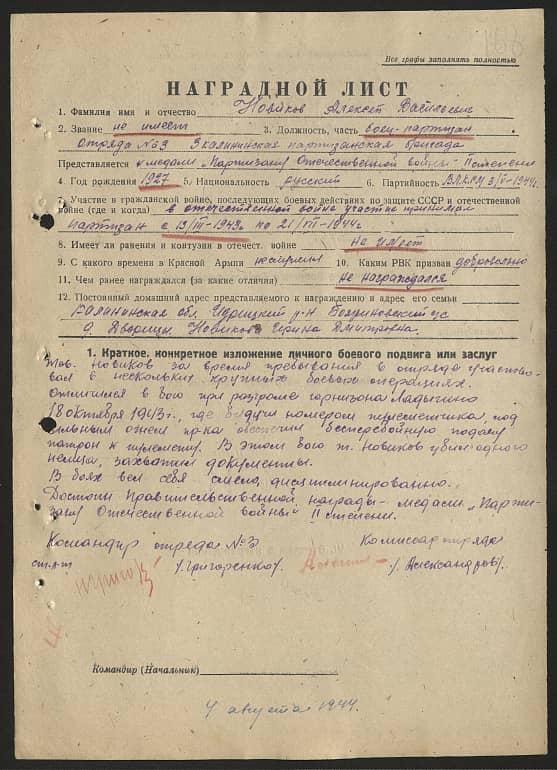 Все графы заполнять полностью
НАГРАДНОЙ ЛИСТ
1. Фамилия имя и отчество Новиков Алексей Васильевич
2. Звание не имеет 3. Должность, часть боец-партизан
отряда №3 3 Калининская партизанская бригада
Представляется к медали „Партизану Отечественной войны" II степени
4. Год рождения 1927 5. Национальность русский 6. Партийность ВЛКСМ
7. Участие в гражданской войне, последующих боевых действиях по защите СССР и отечественной
войне (где и когда) в отечественной войне участие принимал
партизан с 13/III-1943г по 21/VII-1944г.
8. Имеет ли ранения и контузии в отечест. войне не имеет
9. С какого времени в Красной Армии 10. Каким РВК призван добровольно
11. Чем ранее награждался (за какие отличия) не награждался
12. Постоянный домашний адрес представляемого к награждению и адрес его семьи
Калининская обл. Идрицкий р-н с/с
д. Дворицы Новикова Ирина Дмитровна.
1. Краткое, конкретное изложение личного боевого подвига или заслуг
Тов. Новиков за время пребывания в отряде участво-
вал в нескольких крупных боевых операциях.
Отличился в бою при разгроме гарнизона Ладыгино
18 октября 1943г., где будучи номером пулеметчика, под
сильным огнем пр-ка обеспечил бесперебойную подачу
патрон к пулемету. В этом бою т. Новиков убил одного
немца, захватил документы.
В боях вел себя смело, дисциплинированно.
Достоин Правительственной награды - медали „Парти-
зану Отечественной войны" II степени.
Командир отряда №3 Комиссар отряда
ст. л-т /Григоренко/ /Александров/.
Командир (Начальник)
4 августа 1944г.